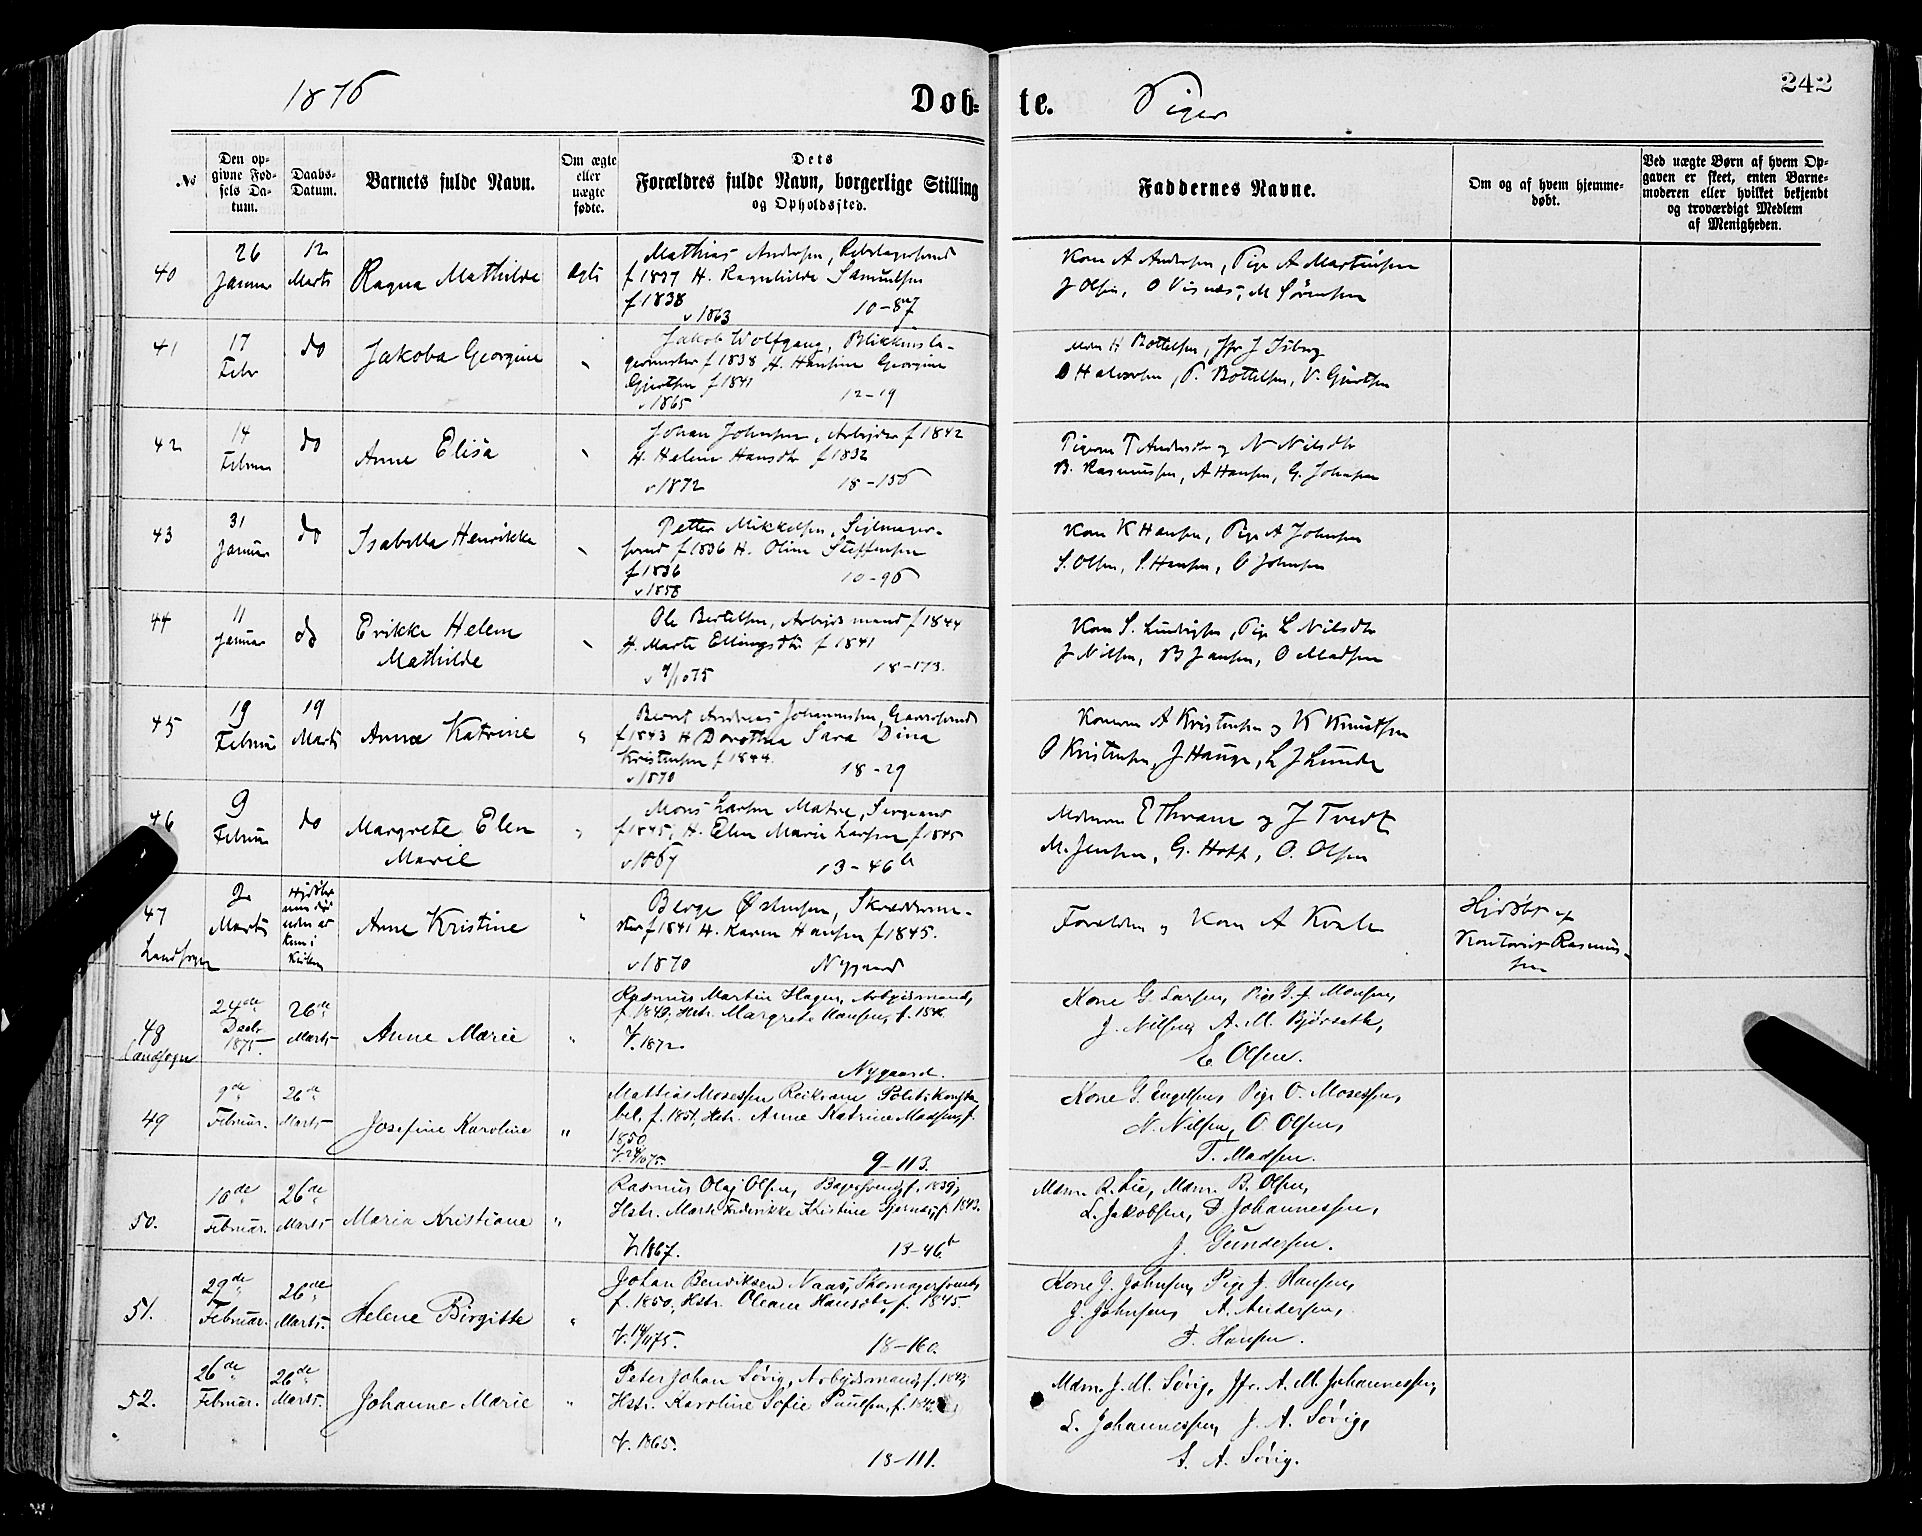 1876
Døb-
te.
Piger
242
No
Den op-
givne Fød-
sels Da-
tum.
Daabs-
Datum.
Barnets fulde Navn.
Om ægte
eller
uægte
fødte.
Dets
Forældres fulde Navn, borgerlige Stilling
og Opholdssted.
Faddernes Navne.
Om og af hvem hjemme-
døbt.
Ved uægte Børn af hvem Op-
gaven er skeet, enten Barne-
moderen eller hvilket bekjendt
og troværdigt Medlem
af Menigheden.
40
26
Januar
12
Marts
Ragna Mathilde
Ægte
Mathias Andersen,
f 1837 H. Ragnhilde Samuelsen
f 1838
v 1863 10-87
Kone A Andersen, Pige A Martinsen
J Olsen, O Visnæs, M Sørensen
41
17
Febr
do
Jakoba Georgine
Jakob Wolfgang, Blikkensla-
germester f 1838 H. Hansine Georgine
Gjertsen f 1841
v 1865 12-19
Mdm H Bottelsen, Jfr J Isberg
O Halvorsen, P. Bottelsen, V. Gjertsen
42
14
Februar
do
Anne Elisa
Johan Johnsen, Arbejder f 1842
H. Helene Hansdtr f 1832
v 1872 18-156
Pigerne T Andersdtr og N Nilsdtr
B. Rasmussen, A Hansen, G. Johnsen
43
31
Januar
do
Isabella Henrikke
Petter Mikkelsen, Sejlmager-
svend f 1836 H. Oline Steffensen
f 1836
v 1858 10-96
Kone K Hansen, Pige A Johnsen
S. Olsen, S. Hansen, O Johnsen
44
11
Januar
do
Erikke Helene
Mathilde
Ole Bertelsen, Arbejdsmand f 1844
H. Marte Ellingsdtr f 1841
18-173.
Kone S. Ludvigsen, Pige L Nilsdtr
J Nilsen, B Jansen, O Madsen
45
19
Februar
19
Marts
Anna Katrine
"
Bernt Andreas Johannesen, Garversvend
f 1843 H Dorothea Sara Dina
Kristensen f 1844.
v 1870 18-29
Konerne A Kristensen og K Knudsen
O Kristensen, J Hauge, L J Lunde
46
9
Februar
do
Margrete Elen
Marie
"
Mons Larsen Matre, Sergeant
f 1845, H. Elen Marie Larsen f 1845
v 1867 13-46b
Mdmerne E Thrane og J Tvedt
M. Jensen, G. Hoff, O. Olsen
47
Landsogn
2
Marts
Anne Kristine
"
Berge Østensen, Skræddersme-
ster f 1841 H. Karen Hansen f 1845.
v 1870 Nygaard
Forældre og Kone A Kvale
Hjdøbt af
Kontorist Rasmus-
sen
48
Landsogn
24de
Decbr
1875.
26de
Marts
Anne Marie
"
Rasmus Martin Hagen, Arbejdsmand,
f. 1849, Hstr. Margrete Hansen,
V. 1872.
Nygaard.
Kone G. Larsen, Pige G. J. Monsen,
J. Nilsen, A. M. Bjørseth,
E. Olsen.
49
9de
Februar.
26de
Marts
Josefine Karoline
"
Mathias Mosessen Reiksane Politikonsta-
bel, f. 1851, Hstr. Anne Katrine Madsen, f.
1850
9-113.
Kone G. Engelsen, Pige O. Mosessen,
N. Nilsen, O. Olsen,
T. Madsen.
50.
10de
Februar.
26de
Marts
Maria Kristiane
"
Rasmus Olaj Olsen, Bagersvend, f. 1839,
Hstr. Marte Frederikke Kristine Gjernes, f. 1843.
V. 1867. 13-46b
Mdm. R. Lie, Mdm. B. Olsen,
L. Jakobsen, D Johannessen,
J. Gundersen.
51.
29de
Februar.
26de
Marts.
Helene Birgitte
"
Johan Benriksen Naas, Skomagersvend,
f. 1850, Hstr. Oleane Hansdtr, f. 1845.
18-160.
Kone G. Johnsen, Pige J. Hansen,
J. Johnsen, A. Andersen,
T. Hansen.
52.
26de
Februar.
26de
Marts.
Johanne Marie
"
Peter Johan Søvig, Arbejdsmand,
Hstr. Karoline Sofie Paulsen,
V. 1865.
13-111.
Mdm. J. M. Søvig, Jfr. A. M. Johannessen,
L. Johannessen, J. A. Søvig,
S. A. Søvig.